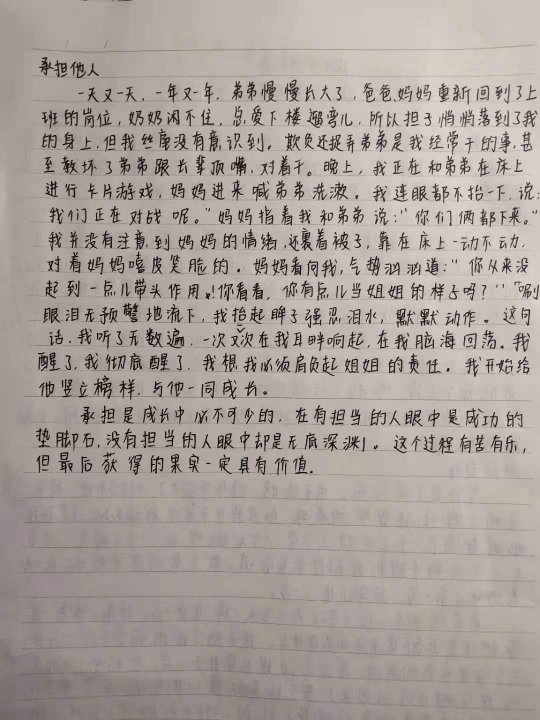 承担他人
一天又一天，一年又一年，弟弟慢慢长大了，爸爸妈妈重新回到了上
班的岗位，奶奶闲不住，总爱下楼遛弯儿，所以担子悄悄落到了我
的身上，但我丝毫没有意识到。欺负还捉弄弟弟是我经常干的事，甚
至教坏了弟弟跟长辈顶嘴，对着干。晚上，我正在和弟弟在床上
进行卡片游戏，妈妈进来喊弟弟洗漱。我连眼都不抬一下，说：
我们正在对战呢。”妈妈指着我和弟弟说：“你们俩都下来。”
我并没有注意到妈妈的情绪，还裹着被子，靠在床上一动不动，
对着妈妈嘻皮笑脸的。妈妈看向我，气势汹汹道：“你从来没
起到一点儿带头作用！你看看，你有点儿当姐姐的样子吗？”“唰”
眼泪无预警地流下，我抬起眸子强忍泪水，默默动作。这句
话，我听了无数遍，一次又次在我耳畔响起，在我脑海回荡。我
醒了，我彻底醒了，我想我必须肩负起姐姐的责任。我开始给
他竖立榜样，与他一同成长。
承担是成长中必不可少的，在有担当的人眼中是成功的
垫脚石，没有担当的人眼中却是无底深渊。这个过程有苦有乐，
但最后获得的果实一定具有价值.